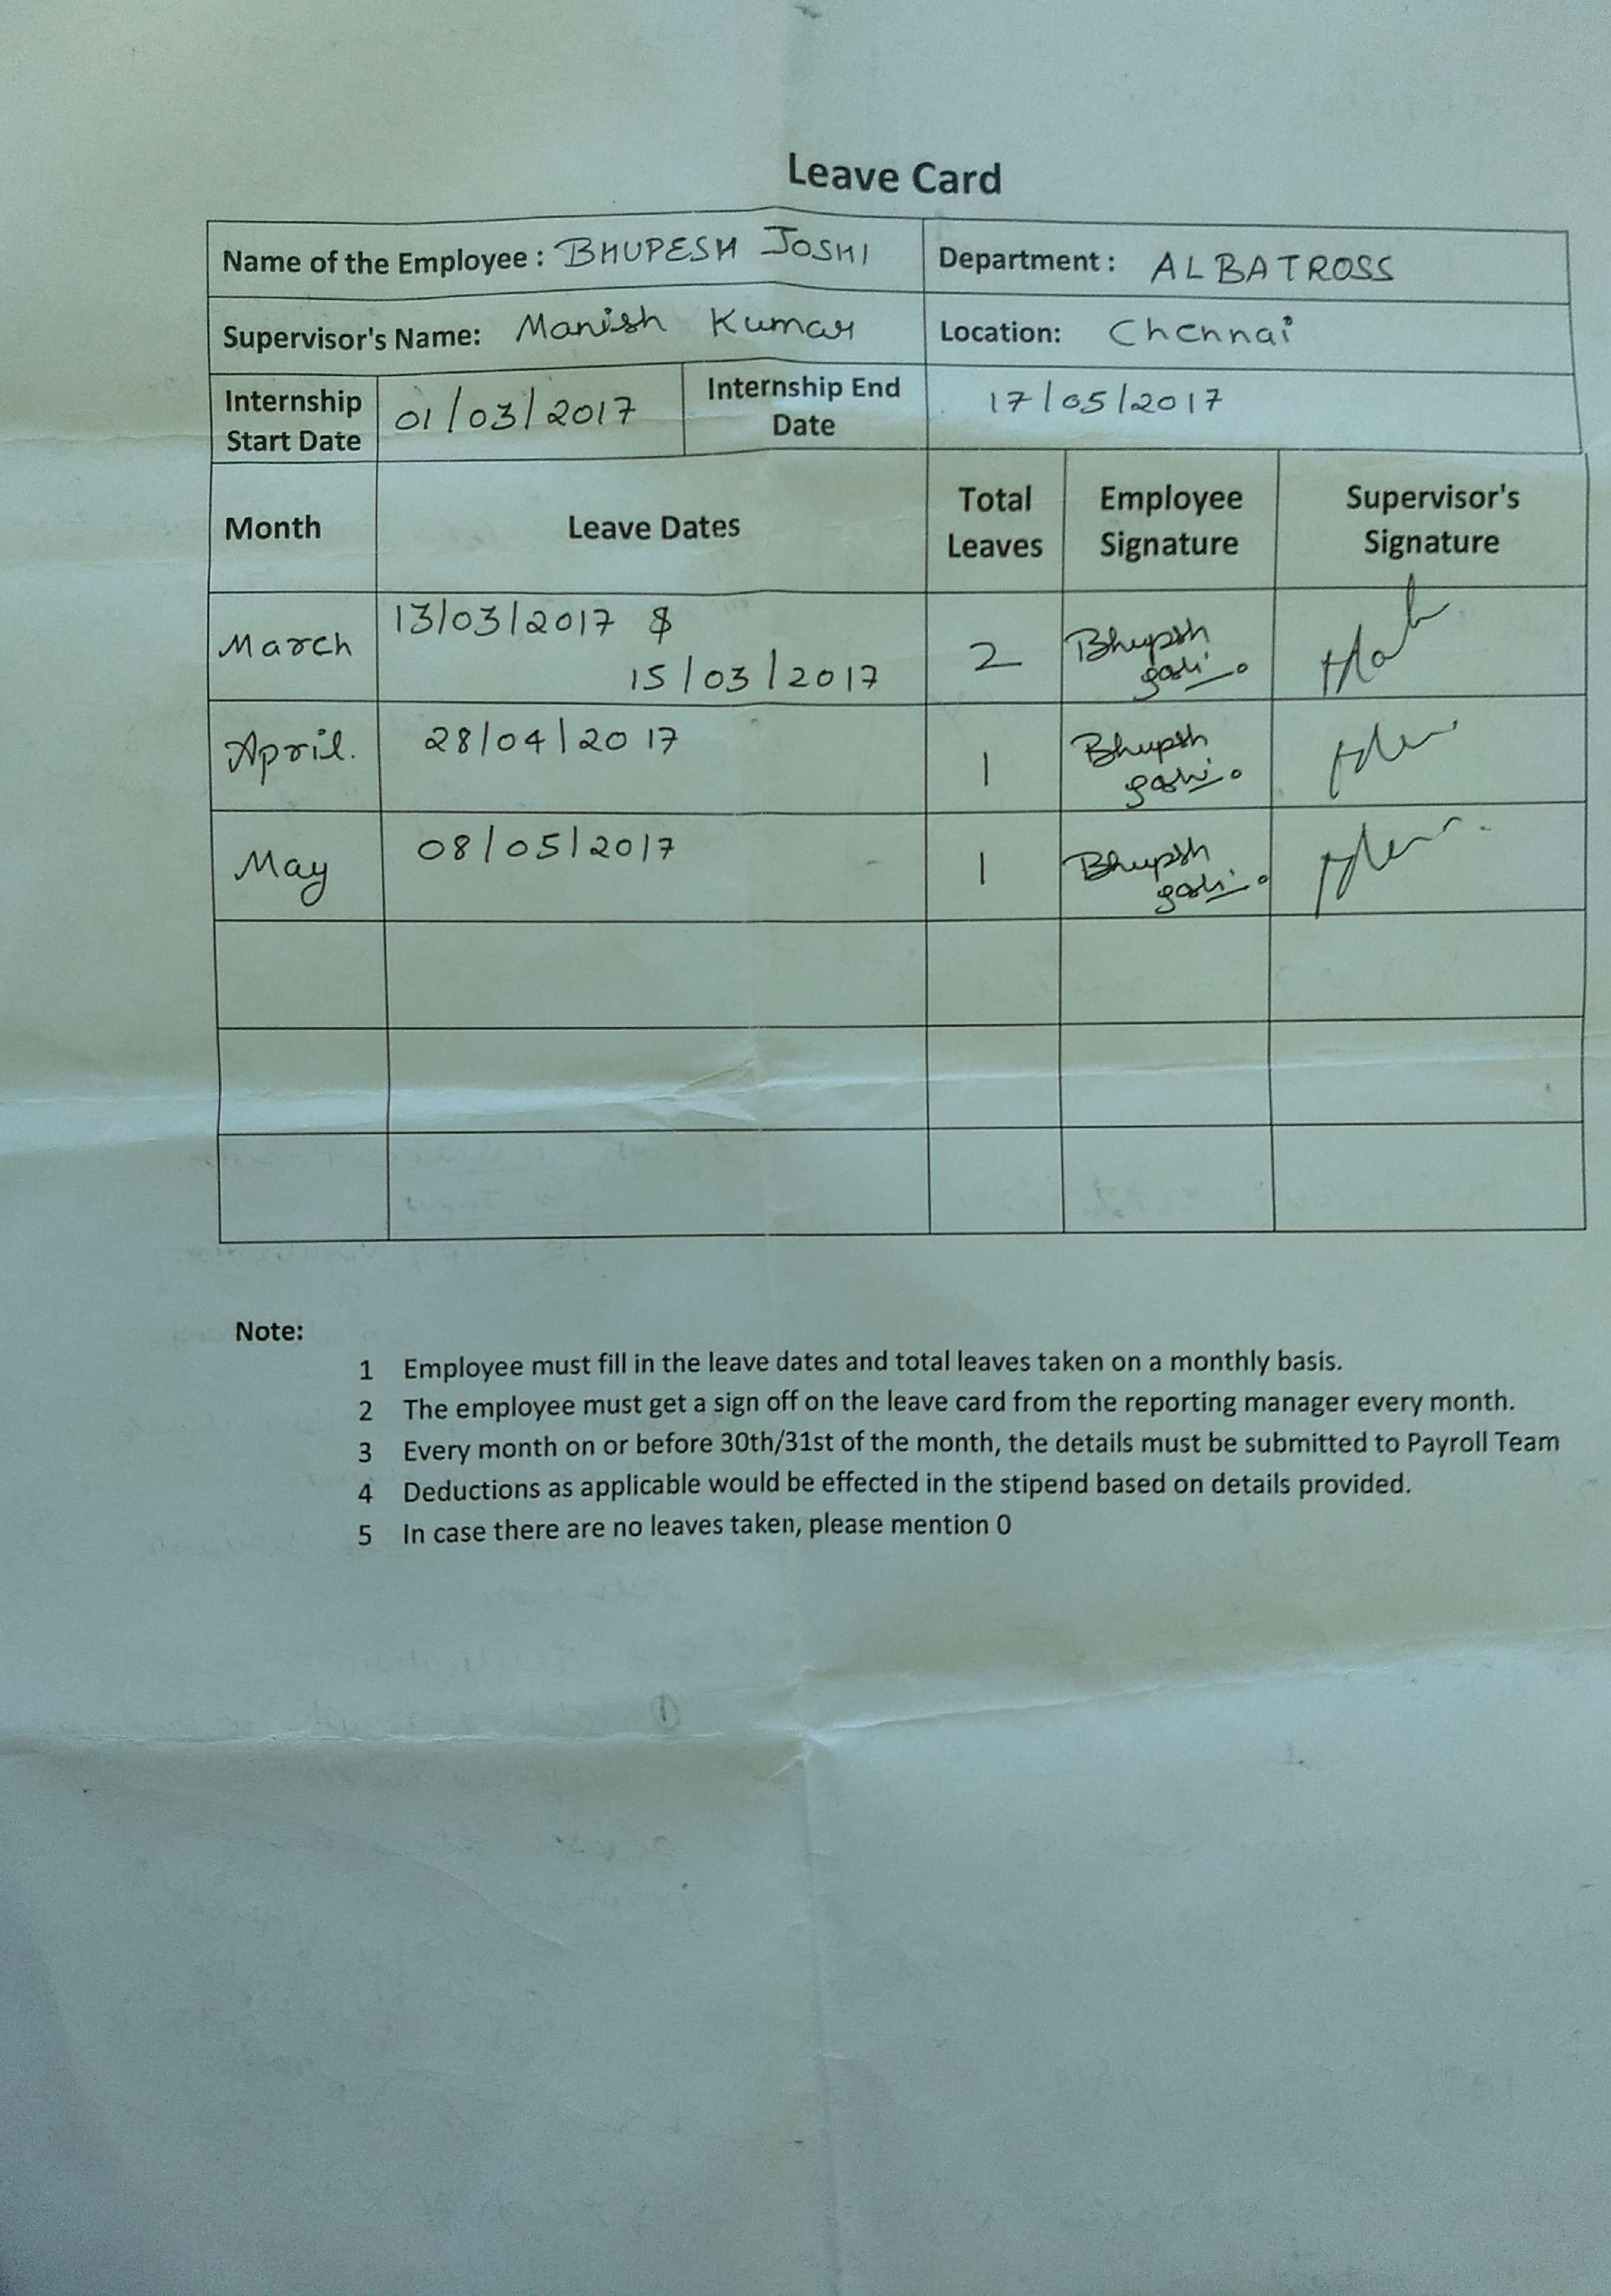 Leave Card
Name of the Employee : BHUPESH JOSHI
Department : ALBATROSS
Supervisor's Name: Manish Kumar
Location: Chennai
Internship
Start Date
01/03/2017
Internship End
Date
17/05/2017
Month
Leave Dates
Total
Leaves
Employee
Signature
Supervisor's
Signature
March
13/03/2017 &
15/03/2017
2
Bhupesh
Joshi.
April.
28/04/2017
1
Bhupesh
Joshi.
May
08/05/2017
1
Bhupesh
Joshi.
Note:
1 Employee must fill in the leave dates and total leaves taken on a monthly basis.
2 The employee must get a sign off on the leave card from the reporting manager every month.
3 Every month on or before 30th/31st of the month, the details must be submitted to Payroll Team
4 Deductions as applicable would be effected in the stipend based on details provided.
5 In case there are no leaves taken, please mention 0